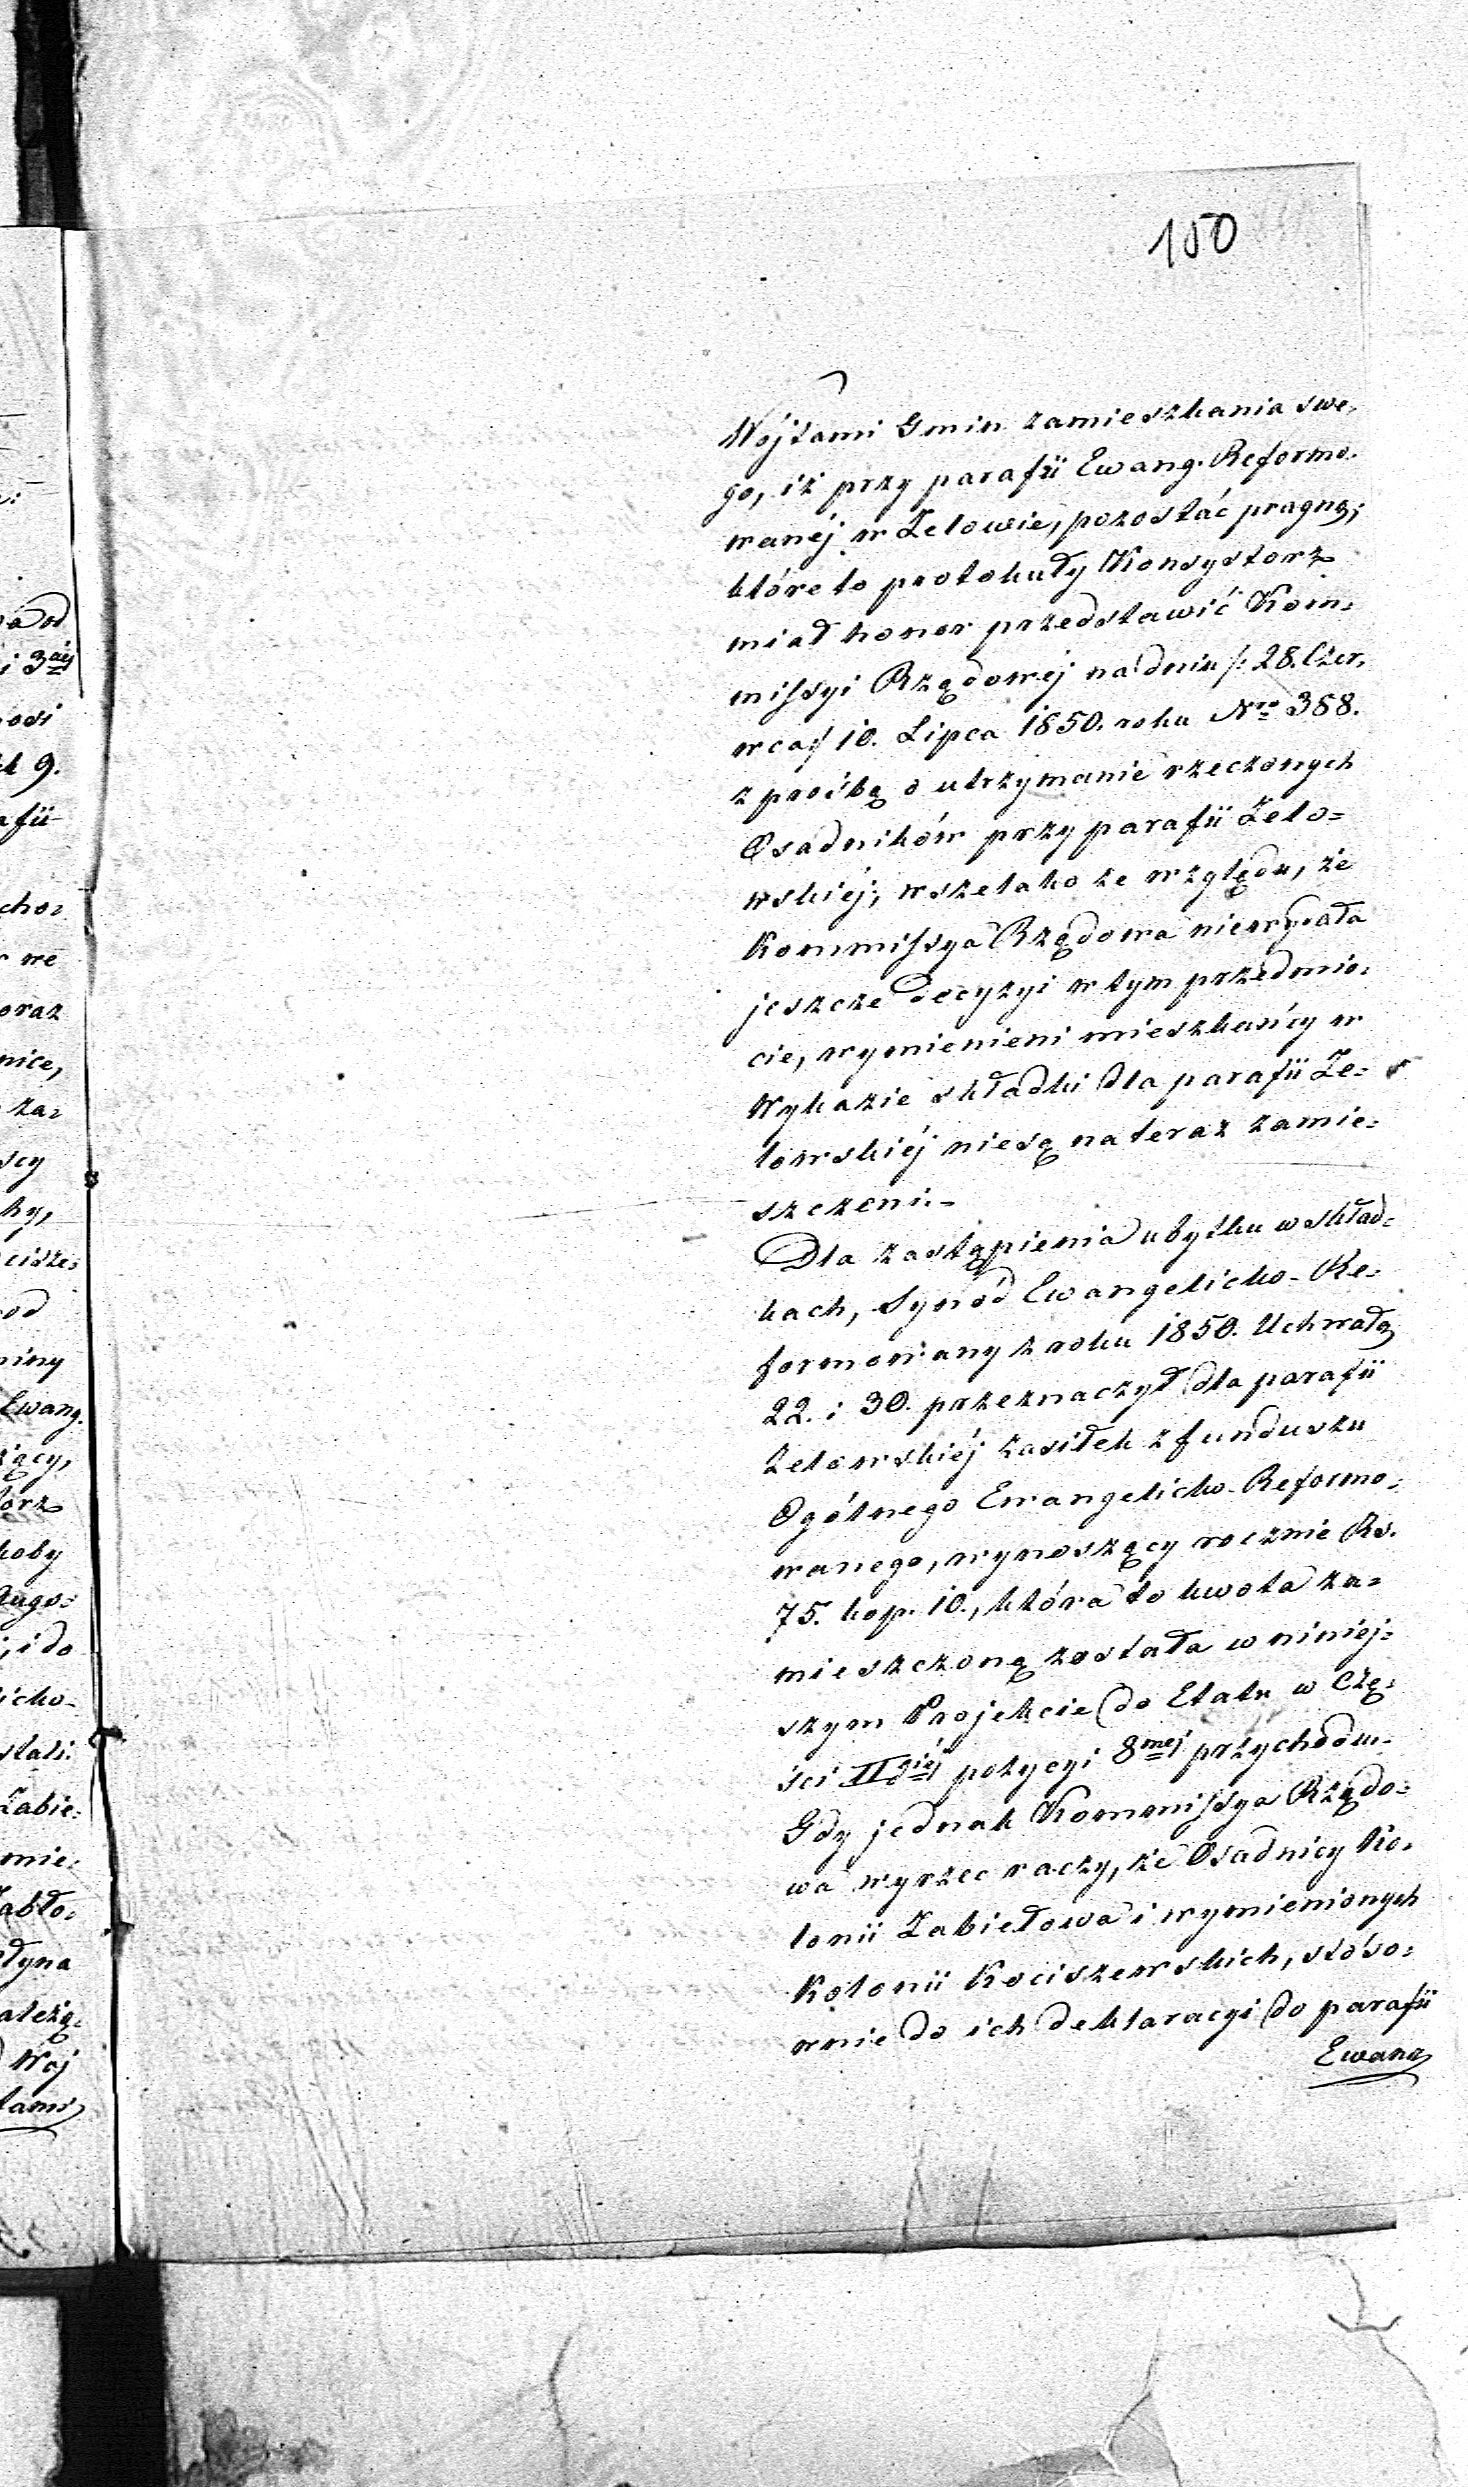 150
Wójtami Gmin zamieszkania swe,
go, iż przy parafii Ewang. Reformo.
wanéj w Zelowie, pozostać pragną;
które to protokuły Konsystorz
miał honor przedstawić Kom,
missyi Rządowéj na dniu /: 28. Czer,
wca :/ 10. Lipca 1850. roku Nro 388.
z proźbą o utrzymanie rzeczonych
Osadników przy parafii Zelo=
wskiéj; wszelako ze względu, że
Kommissya Rządowa niewydała
jeszcze decyzyi w tym przedmio,
cie, wymienieni mieszkańcy w
Wykazie składki dla parafii Ze=
lowskiéj niesą na teraz zamie=
szczeni.-
Dla zastąpienia ubytku w skład=
kach, Synód Ewangelicko-Re=
formowany z roku 1850. Uchwałą
22. i 30. przeznaczył dla parafii
Zelowskiéj zasiłek z funduszu
Ogólnego Ewangelicko-Reformo,
wanego, wynoszący rocznie Rs.
75. kop. 10., która to kwota za=
mieszczoną została w niniej=
szym Projekcie do Etatu w Czę,
ści IIgiéj pozycyi 8mej przychodów.
Gdy jednak Kommissya Rządo=
wa wyrzec raczy, że Osadnicy Ko,
lonii Zabiełowa i wymienionych
Kolonii Kociszewskich, stóso=
wnie do ich deklaracyi do parafii
Ewang
nad
i 3aij
nosi
9.
afii
cho=
we
oraz
nice,
za=
scy
ky,
cisze=
od
miny
Ewang.
żący,
torz
koby
Augs=
i, i do
icko-
stali.
Zabie=
mie=
Zabło=
dyna
ależą=
Wój
tami